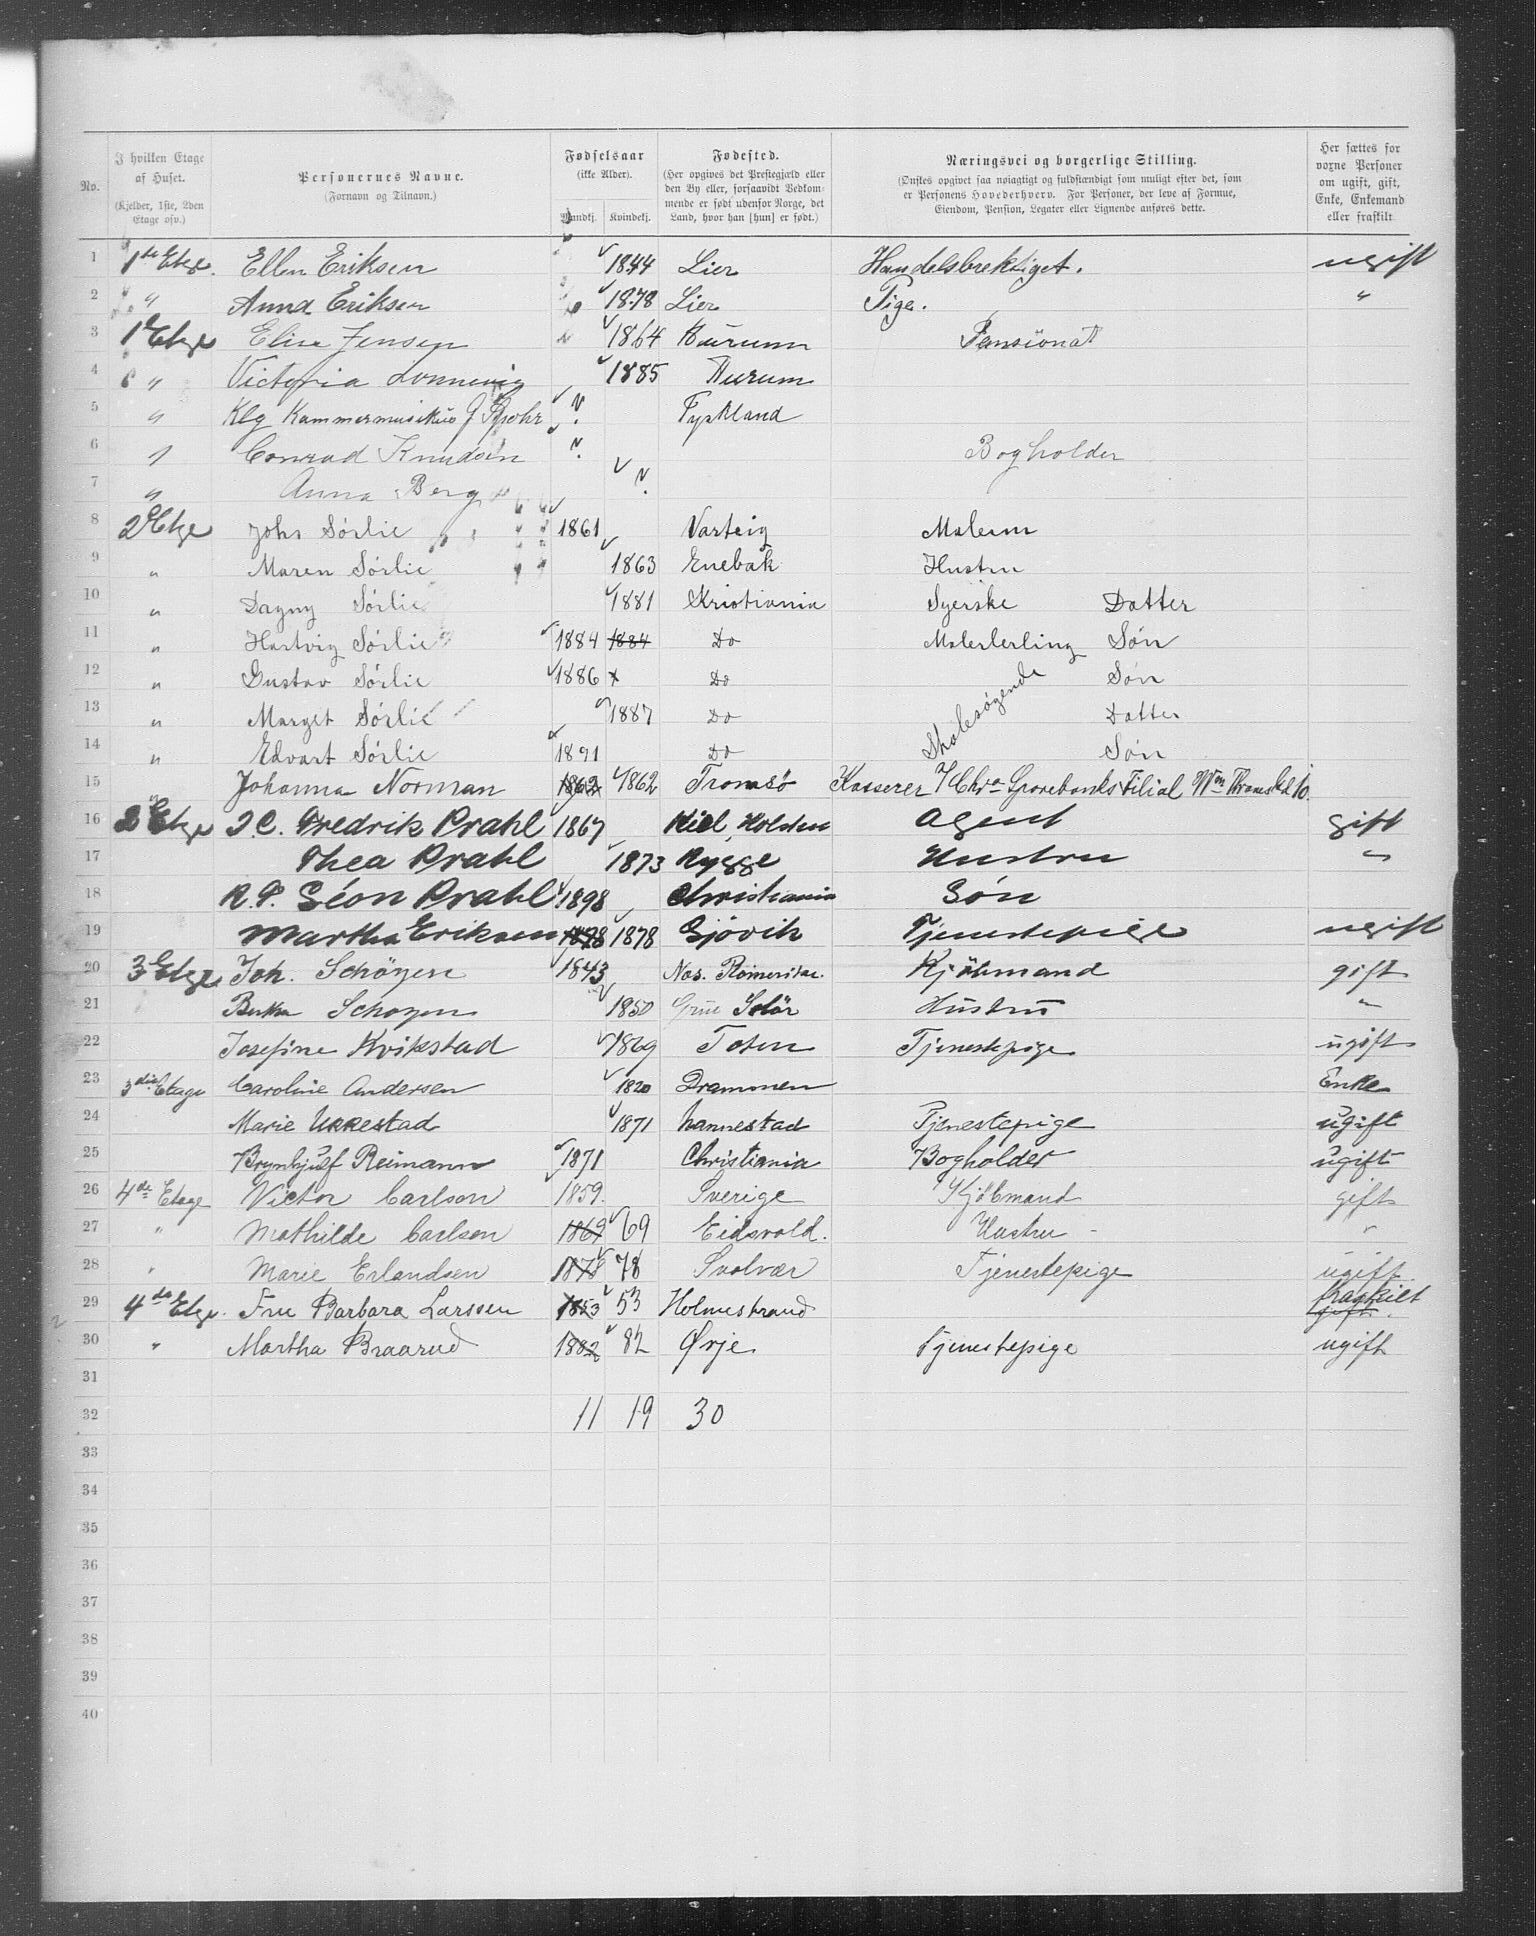 No. | I hvilken Etage af Huset. (Kjelder, 1ste, 2den Etage osv.) | Personernes Navne. (Fornavn og Tilnavn.) | Fødselsaar (ikke Alder). Mandkj. Kvindekj. | Fødested. (Her opgives det Prestegjæld eller den By eller, forsaavidt Vedkommende er født udenfor Norge, det Land, hvor han [hun] er født.) | Næringsvei og borgerlige Stilling. (Ønskes opgivet saa nøiagtigt og fuldstændigt som muligt efter det, som er Personens Hovederhverv. For Personer, der leve af Formue, Eiendom, Pension, Legater eller Lignende anføres dette.) | Her sættes for voxne Personer om ugift, gift, Enke, Enkemand eller fraskilt
1 1ste Etge. Ellen Eriksen 1844 Lier Handelsberektiget. ugift
2 " Anna Eriksen 1878 Lier Pige. "
3 1 Etge Elise Jensen 1864 Hurum Pensionat
4 " Victoria Lonnevig 1885 Hurum
5 " Klg Kammermusikus Spohr ? Tyskland
6 " Conrad Knudsen ? Bogholder
7 " Anna Berg ?
8 2 Etge Johs Sørlie 1861 Varteig Malerm
9 " Maren Sørlie 1863 Enebak Hustru
10 " Dagny Sørlie 1881 Kristiania Syerske Datter
11 " Hartvig Sørlie 1884 1884 Do Malerlerling Søn
12 " Gustav Sørlie 1886 Do Skolesøgende Søn
13 " Marget Sørlie 1887 Do Datter
14 " Edvart Sørlie 1891 Do Søn
15 " Johanna Norman 1862 1862 Tromsø Kasserer i Chra Sparebanks Filial
16 2 Etge J C. Fredrik Prahl 1867 Kiel, Holsten Agent gift
17 Thea Prahl 1873 Rygge Hustru "
18 R. P. Léon Prahl 1898 Christiania Søn
19 Martha Eriksen 1878 1878 Gjövik Tjenestepige ugift
20 3 Etge Joh. Schöyen 1843 Nes. Romerike. Kjöbmand gift
21 Schoyen 1850 Grue Solör Hustru "
22 Josefine Kvikstad 1869 Toten Tjenestepige ugift
23 3die Etage Caroline Andersen 1820 Drammen Enke
24 Marie Ukkestad 1871 Nannestad Tjenestepige ugift
25 Brynhjulf Reimann 1871 Christiania Bogholder ugift
26 4de Etage Victor Carlson 1859. Sverige Kjöbmand gift
27 " Mathilde Carlson 1869 69 Eidsvold. Hustru - "
28 " Marie Erlandsen 1878 78 Svolvær Tjenestepige ugift
29 4de Etge. Fru Barbara Larssen 1853 53 Holmestrand fraskilt gift.
30 " Martha Braarud 1882 82 Ørje Tjenestepige ugift
31
32 11 19 30
33
34
35
36
37
38
39
40